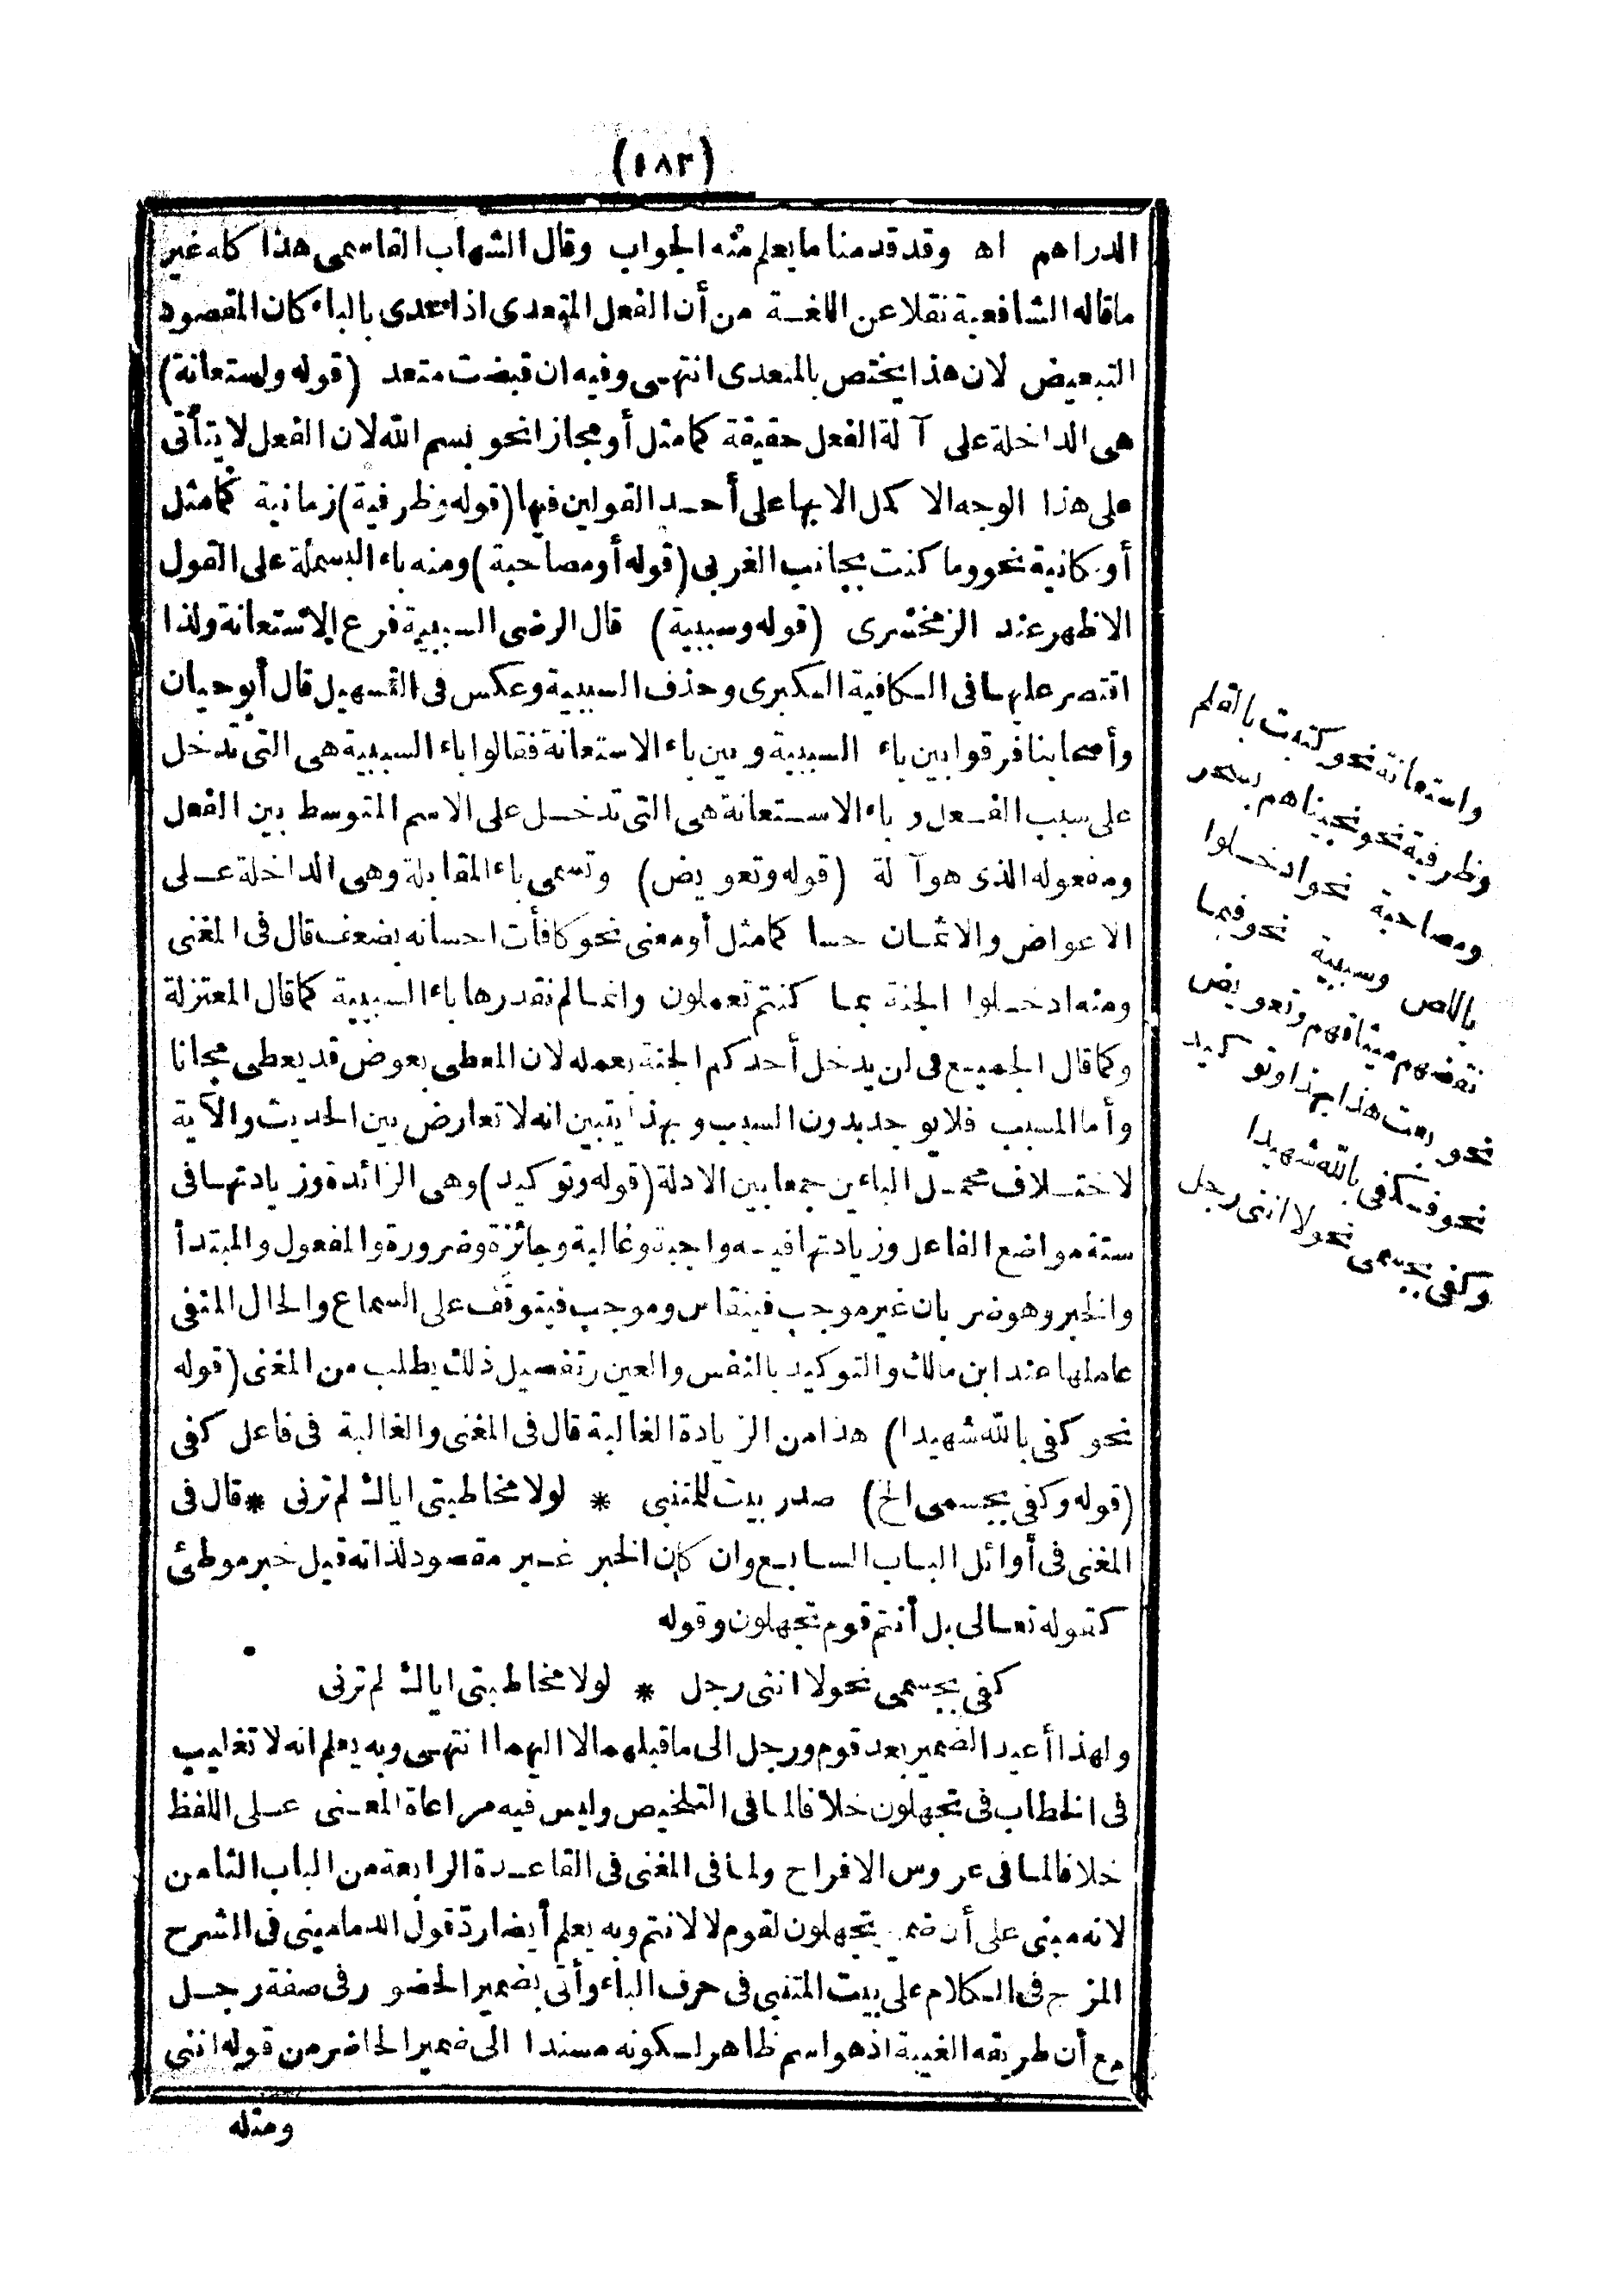 (١٨٣)
الدراهم اه وقد قدمنا ما يعلم منه الجواب وقال الشهاب القاسمى هذا كله غير
ما قاله الشافعية نقلا عن اللغة من أن الفعل المتعدى اذا تعدى بالباء كان المقصود
التبعيض لان هذا يختص بالمتعدى انتهى وفيه ان قبضت متعد (قوله ولستعانة)
هى الداخلة على آلة الفعل حقيقة كما مثل أو مجازا نحو بسم الله لان الفعل لا يتأتى
على هذا الوجه الا كمل الا بها على أحد القولين فيها (قوله وظرفية) زمانية كما مثل
أو مكانية نحو وما كنت بجانب الغربى (قوله أو مصاحبة) ومنه باء البسملة على القول
الاظهر عند الزمخشرى (قوله وسببية) قال الرضى السببية فرع الاستعانة ولذا
اقتصر عليها فى الكافية الكبرى وحذف السببية وعكس فى التسهيل قال أبو حيان
وأصحابنا فرقوا بين باء السببية وبين باء الاستعانة فقالوا باء السببية هى التى تدخل
على سبب الفعل وباء الاستعانة هى التى تدخل على الاسم المتوسط بين الفعل
ومفعوله الذى هو آلة (قوله وتعويض) وتسمى باء المقابلة وهى الداخلة على
الاعواض والاثمان حسا كما مثل أو معنى نحو كافأت احسانه بضعف قال فى المغنى
ومنه ادخلوا الجنة بما كنتم تعملون وانما لم نقدرها باء السببية كما قال المعتزلة
وكما قال الجميع فى لن يدخل أحدكم الجنة بعمله لان المعطى بعوض قد يعطى مجانا
وأما المسبب فلا يوجد بدون السبب وبهذا يتبين انه لا تعارض بين الحديث والآية
لاختلاف محمل الباءين جمعا بين الادلة (قوله وتوكيد) وهى الزائدة وزيادتها فى
ستة مواضع الفاعل وزيادتها فيه واجبة وغالبة وجائزة وضرورة والمفعول والمبتدأ
والخبر وهو ضربان غير موجب فينقاس وموجب فيتوقف على السماع والحال المنفى
عاملها عند ابن مالك والتوكيد بالنفس والعين وتفصيل ذلك يطلب من المغنى (قوله
نحو كفى بالله شهيدا) هذا من الزيادة الغالبة قال فى المغنى والغالبة فى فاعل كفى
(قوله وكفى بجسمى الخ) صدر بيت للمتنبى * لولا مخاطبتى اياك لم ترنى * قال فى
المغنى فى أوائل الباب السابع وان كان الخبر غير مقصود لذاته قيل خبر موطئ
كقوله تعالى بل أنتم قوم تجهلون وقوله
كفى بجسمى نحولا اننى رجل * لولا مخاطبتى اياك لم ترنى
ولهذا أعيد الضمير بعد قوم ورجل الى ما قبلهما لا اليهما انتهى وبه يعلم انه لا تغليب
فى الخطاب فى تجهلون خلافا لما فى التلخيص وليس فيه مراعاة المعنى على اللفظ
خلافا لما فى عروس الافراح ولما فى المغنى فى القاعدة الرابعة من الباب الثامن
لانه مبنى على أن ضمير تجهلون لقوم لا لانتم وبه يعلم أيضا رد قول الدمامينى فى الشرح
المزج فى الكلام على بيت المتنبى فى حرف الباء وأتى بضمير الحضور فى صفة رجل
مع أن طريقه الغيبة اذ هو اسم ظاهر لكونه مسندا الى ضمير الحاضر من قوله اننى
ومثله
واستعانة نحو كتبت بالقلم
وظرفية نحو نجيناهم بسحر
ومصاحبة نحو ادخلوا
بالامن وسببية نحو فبما
نقضهم ميثاقهم وتعويض
نحو بعت هذا بهذا وتوكيد
نحو فكفى بالله شهيدا
وكفى بجسمى نحولا اننى رجل